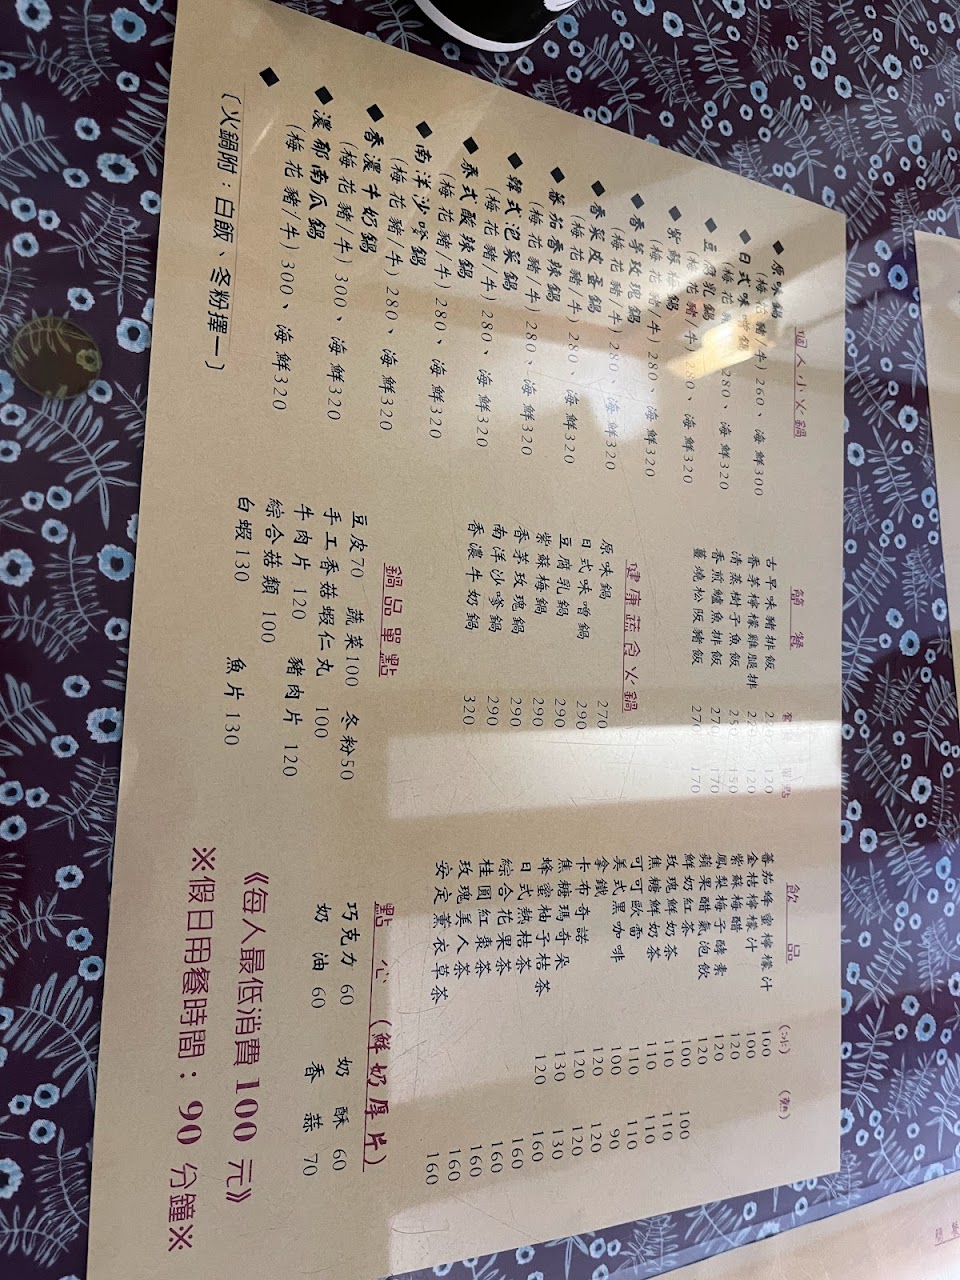 個人小火鍋
◆原味鍋
(梅花豬/牛)260、海鮮300
◆日式味噌鍋
(梅花豬/牛)280、海鮮320
◆豆腐乳鍋
(梅花豬/牛)280、海鮮320
◆紫蘇梅鍋
(梅花豬/牛)280、海鮮320
◆香茅玫瑰鍋
(梅花豬/牛)280、海鮮320
◆香菜皮蛋鍋
(梅花豬/牛)280、海鮮320
◆蕃茄香辣鍋
(梅花豬/牛)280、海鮮320
◆韓式泡菜鍋
(梅花豬/牛)280、海鮮320
◆泰式酸辣鍋
(梅花豬/牛)280、海鮮320
◆南洋沙嗲鍋
(梅花豬/牛)280、海鮮320
◆香濃牛奶鍋
(梅花豬/牛)300、海鮮320
◆濃郁南瓜鍋
(梅花豬/牛)300、海鮮320
◆
〔火鍋附：白飯、冬粉擇一〕
簡餐 單點
古早味豬排飯 120
香茅檸檬雞腿排 120
清蒸樹子魚飯 150
香煎鱸魚排飯 270 170
薑燒松阪豬飯 270 170
健康蔬食火鍋
原味鍋 270
日式味噌鍋 290
豆腐乳鍋 290
紫蘇梅鍋 290
香茅玫瑰鍋 290
南洋沙嗲鍋 290
香濃牛奶鍋 320
鍋品單點
豆皮70 蔬菜100 冬粉50
手工香菇蝦仁丸 100
牛肉片 120 豬肉片 120
綜合菇類 100
白蝦130 魚片130
飲品 (冰) (熱)
蕃茄蜂蜜檸檬汁 100
金桔檸檬汁 100
紫蘇梅醋 120
鳳梨梅子酵素 120
蘋果醋氣泡飲 120
鮮奶紅茶 100 100
玫瑰鮮奶茶 110 110
焦糖鮮奶茶 110 110
可可歐蕾 110 110
美式黑咖啡 100 90
拿鐵 120 120
卡布奇諾 120 120
焦糖瑪奇朵 130 130
蜂蜜柚子桔茶 120 160
日式熱桔茶 160
綜合花果茶 160
桂圓紅棗茶 160
玫瑰美人茶 160
安定薰衣草茶 160
點心 (鮮奶厚片)
巧克力 60 奶酥 60
奶油 60 香蒜 70
《每人最低消費 100 元》
※假日用餐時間：90 分鐘※